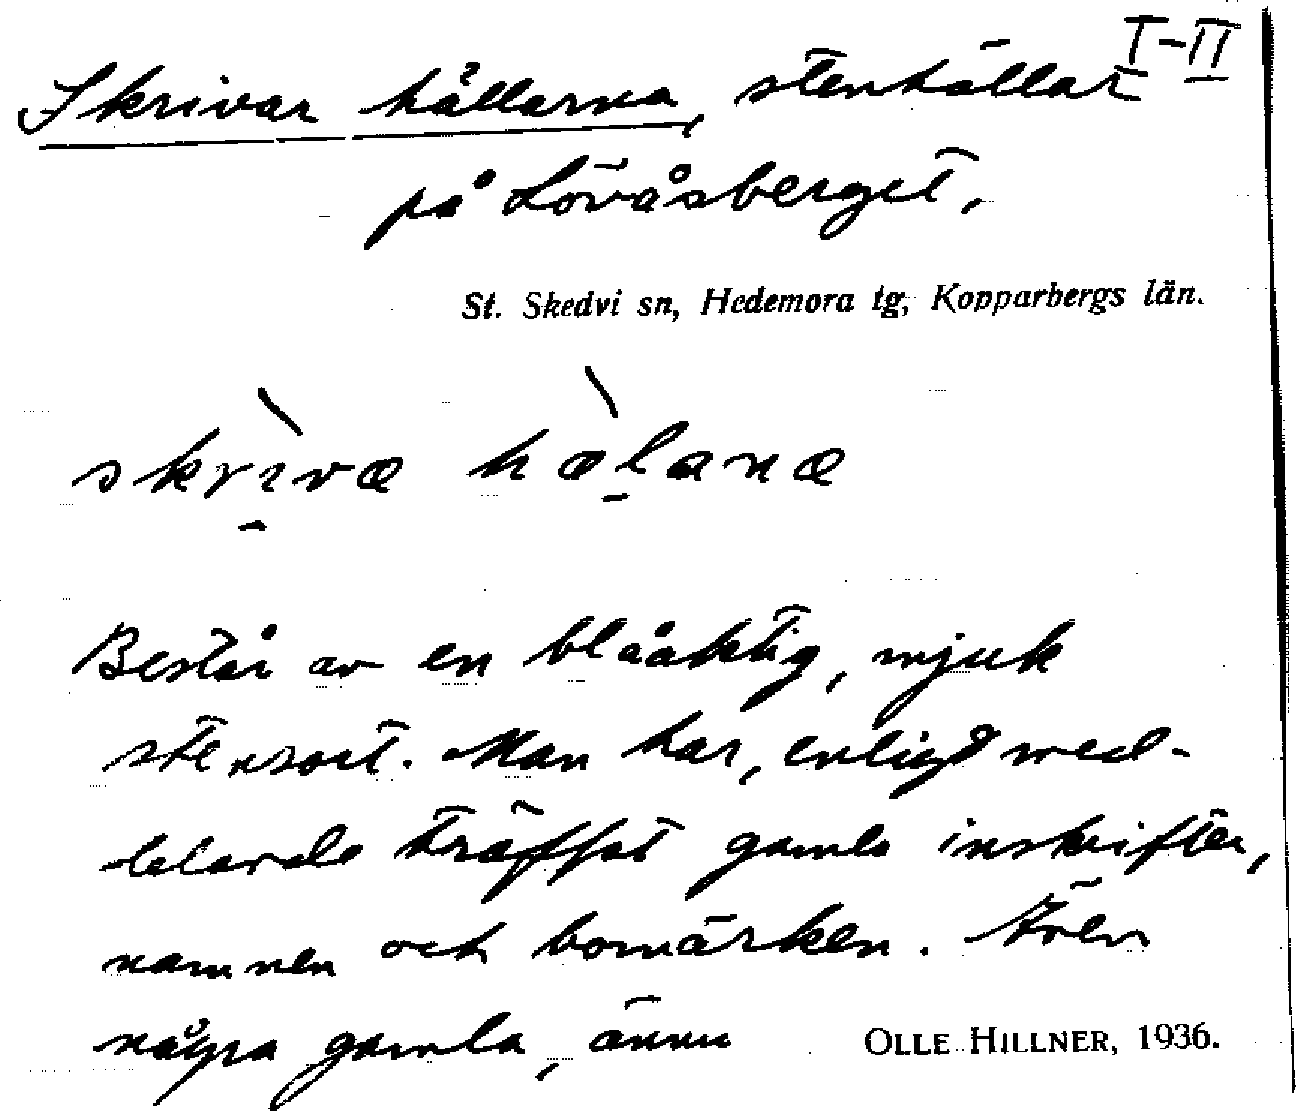 I-II
Skrivar hällarna, stenhällar
på Lövåsberget.
St. Skedvi sn, Hedemora tg, Kopparbergs län.
skrìvæ hæ̀lanæ
Består av en blåaktig, mjuk
stensort. Man har, enligt med-
delande träffat gamla inskrifter,
namnen och bomärken. Även
några gamla, ännu
OLLE HILLNER, 1936.